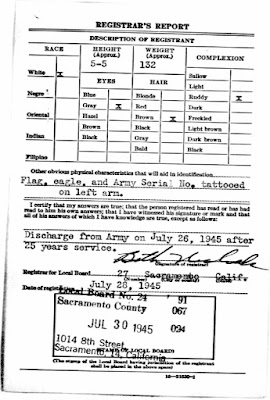 REGISTRAR'S REPORT
DESCRIPTION OF REGISTRANT
RACE HEIGHT (Approx.) WEIGHT (Approx.) COMPLEXION
5-5 132
White X Sallow
EYES HAIR Light
Negro Blue Blonde Ruddy X
Gray X Red Dark
Oriental Hazel Brown X Freckled
Brown Black Light brown
Indian Black Gray Dark brown
Bald Black
Filipino
Other obvious physical characteristics that will aid in identification
Flag, eagle, and Army Serial No. tattooed
on left arm.
I certify that my answers are true; that the person registered has read or has had
read to him his own answers; that I have witnessed his signature or mark and that
all of his answers of which I have knowledge are true, except as follows:
Discharge from Army on July 26, 1945 after
25 years service.
Signature of registrar
Registrar for Local Board 27 Sacramento Calif.
Date of registration July 28, 1945
Local Board No. 24 91
Sacramento County 067
JUL 30 1945 094
1014 8th Street
Sacramento, 14, California
(STAMP OF LOCAL BOARD)
(The stamp of the Local Board having jurisdiction of the registrant
shall be placed in the above space)